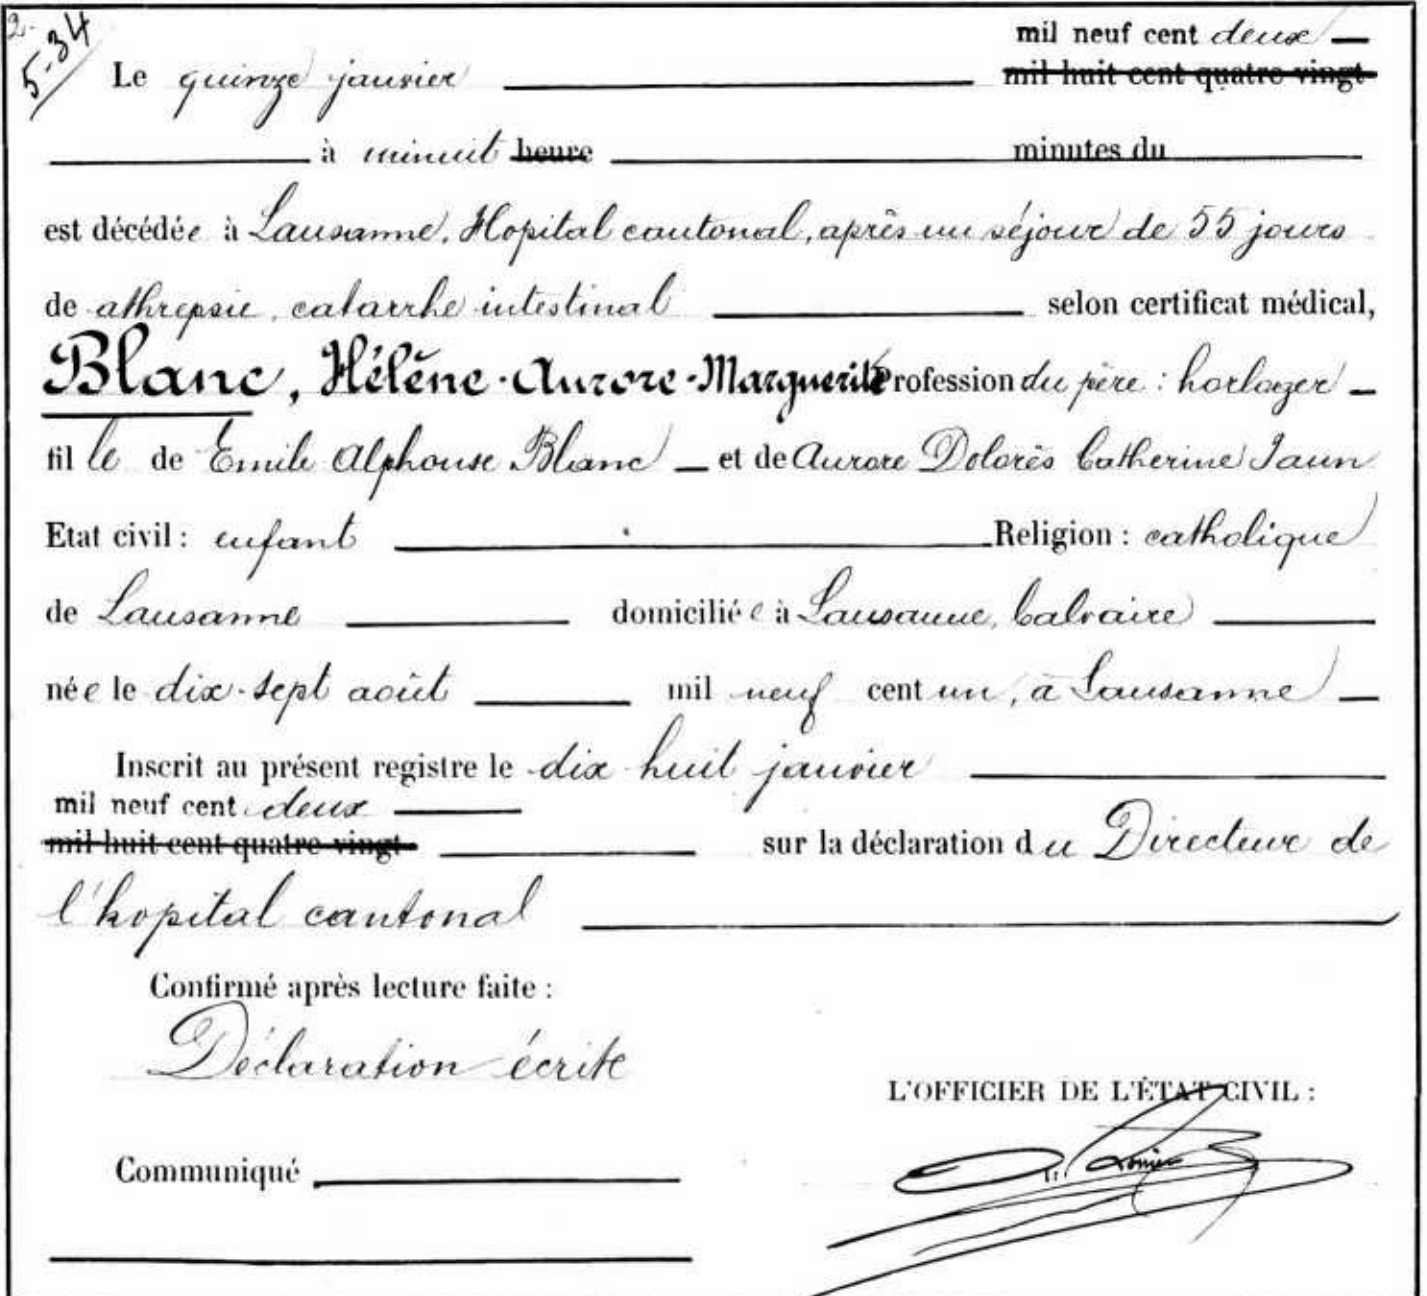 2.
5-34
mil neuf cent deux
Le quinze janvier mil huit cent quatre vingt
à minuit heure minutes du
est décédée à Lausanne, Hopital cantonal, après un séjour de 55 jours
de athrepsie, catarrhe intestinal selon certificat médical,
Blanc, Hélène-Aurore-Marguerite Profession du père : horloger
fille de Emile Alphonse Blanc et de Aurore Dolorès Catherine Jaun
Etat civil : enfant Religion : catholique
de Lausanne domiciliée à Lausanne, Calvaire
née le dix-sept août mil neuf cent un, à Lausanne
Inscrit au présent registre le dix huit janvier
mil neuf cent deux
mil huit cent quatre vingt sur la déclaration du Directeur de
l'hopital cantonal
Confirmé après lecture faite :
Déclaration écrite
L'OFFICIER DE L'ÉTAT CIVIL :
Communiqué